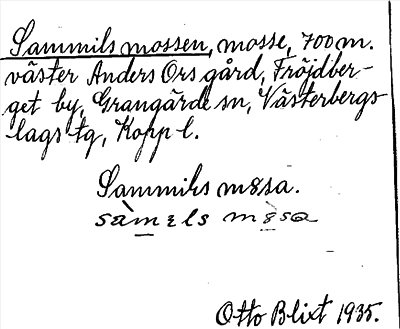 Sammils mossen, mosse, 700 m.
väster Anders Ors gård, Fröjdber-
get by, Grangärde sn, Västerbergs-
lags tg, Kopp l.
Sammils mɵsa.
sàmɛls mɵsa
Otto Blixt 1935.